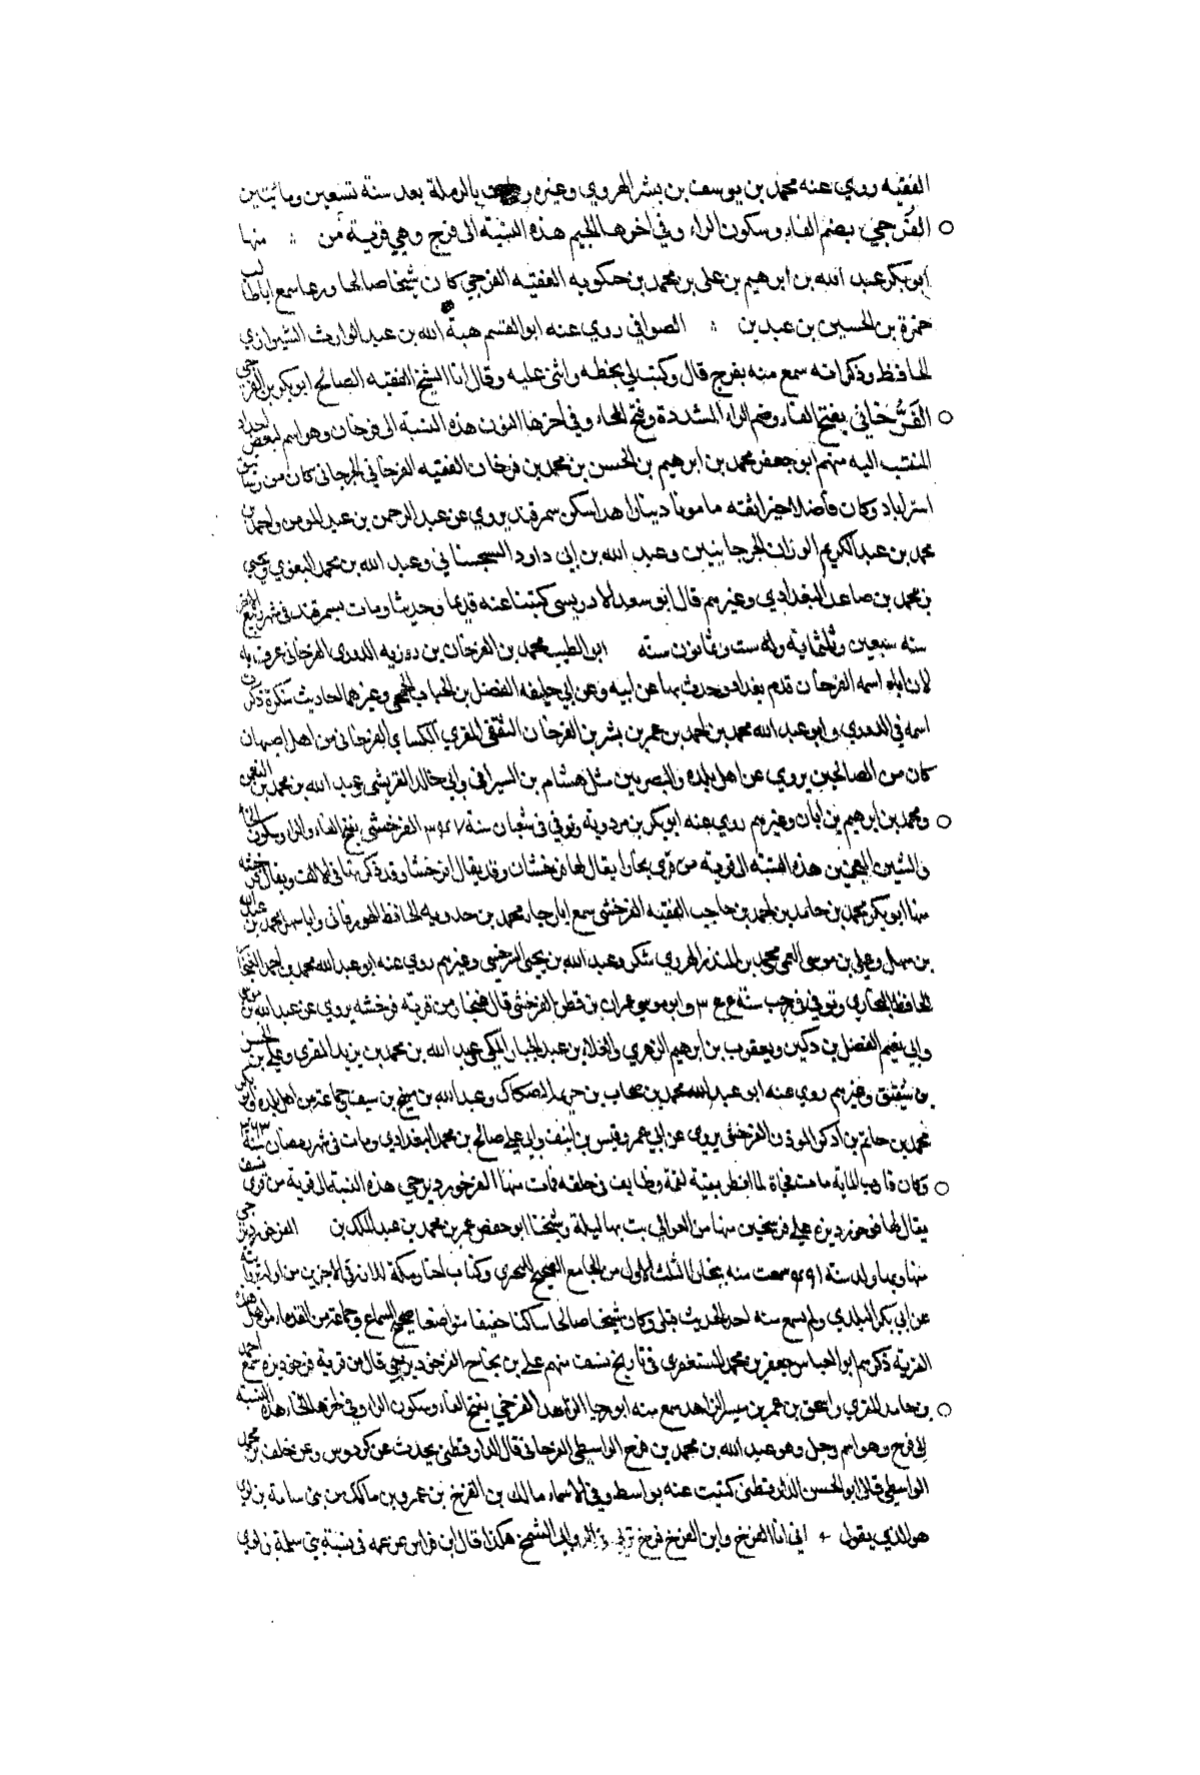 الفقيه روي عنه محمد بن يوسف بن بشر الهروي وغيره بالرملة بعد سنة تسعين ومائتين
الفرجي بضم الفاء وسكون الراء وفي اخرها الجيم هذه النسبة الى فرج وهي قرية من منها
ابو بكر عبد الله بن ابرهيم بن علي بن محمد بن حكويه الفقيه الفرجي كان شيخا صالحا ورعا سمع اباطالب
حمزة بن الحسين بن عبد بن الصوافي روي عنه ابو القسم هبة الله بن عبد الوارث الشيرازي
الحافظ وذكر انه سمع منه بفرج قال وكتب لي بخطه واثنى عليه وقال انا الشيخ الفقيه الصالح ابو بكر بن الفرجي
الفرُّخاني بفتح الفاء وضم الراء المشددة وفتح الخاء وفي اخرها النون هذه النسبة الى فرخان وهو اسم لبعض اجداد
المنتسب اليه منهم ابو جعفر محمد بن ابرهيم بن الحسن بن محمد بن فرخان الفقيه الفرخاني الجرجاني كان من رستاق
استراباد وكان فاضلا خيرا ثقته مامونا دينا زاهدا سكن سمرقند يروي عن عبد الرحمن بن عبد المومن واحمد بن
محمد بن عبد الكريم الوزان الجرجانيين وعبد الله بن ابي داود السجستاني وعبد الله بن محمد البغوي ويحيي
بن محمد بن صاعد البغدادي وغيرهم قال ابو سعد الادريسي كتبنا عنه قديما وحديثا ومات بسمرقند في شهر ربيع الاخر
سنه سبعين وثلثماية وله ست وثمانون سنة ابو الطيب محمد بن الفرخان بن روزبه الدوري الفرخاني عرف به
لان اباه اسمه الفرخان قدم بغداد وحدث بها عن ابيه وعن ابي خليفه الفضل بن الحباب الجمحي وغيرهما احاديث منكرة ذكرت
اسمه في الدوري وابو عبد الله محمد بن احمد بن عمر بن بشر بن الفرخان الثقفي المقري الكساي الفرخاني من اهل اصبهان
كان من الصالحين يروي عن اهل بلده والبصريين مثل هشام بن السيرافي وابي خالد القريشي وعبد الله بن محمد بن النعمن
ومحمد بن ابرهيم بن ابان وغيرهم روي عنه ابو بكر بن مردوية وتوفي في شعبان سنة الفرخشي بفتح الفاء والراء وسكون الخاء
والشين المعجمتين هذه النسبة الى قرية من قرى بخارا يقال لها فرخشان وقد يقال افرخشا وقد ذكرتها في الالف ويقال فرخشه
منها ابو بكر محمد بن حامد بن احمد بن حاجب الفقيه الفرخشي سمع ابا رجاء محمد بن حمدويه الحافظ الهورقاني وابا سهل محمد بن عبد الله
بن سهل وعلي بن موسى القمي محمد بن المنذر الهروي شكر وعبد الله بن يحيى السرخسي وغيرهم روي عنه ابو عبد الله محمد بن احمد الغنجار
الحافظ البخاري وتوفي في رجب سنة وابو موسي عمران بن قطن الفرخشي قال غنجار من قرية فرخشه يروي عن عبد الله بن موسي
وابي نعيم الفضل بن دكين ويعقوب بن ابرهيم الزهري والعلاء بن عبد الجبار المكي وعبد الله بن محمد بن يزيد المقري وعلي بن الحسن
بن شقيق وغيرهم روي عنه ابو عبد الله محمد بن صحاب بن خزيمة الصكاك وعبد الله بن منيح بن سيف وجماعة من اهل بلده وابو بكر
محمد بن حاتم بن اذكر الموذن الفرخشي يروي عن ابي عمر وقيس بن انيف وابي علي صالح بن محمد البغدادي ومات في شهر رمضان سنة ٣٤٣
وكان قارب الماية مات فجاة لما افطر بقية لقمة بقيت في حلقه فمات منها الفرخورديزجي هذه النسبة الى قرية من قرى نسف
يقال لها فرخورديزه على فرسخين منها من العوالي بت بها ليلة وشيخنا ابو حفص عمر بن محمد بن عبد الملك بن الفرخورديزجي
منها وبها ولد سنة سمعت منه ببخارا الثلث الاول من الجامع الصحيح للبخري وكتاب اخبار مكة للازرقي الاجزين من اوله بروايته
عن ابي بكر البلدي ولم يسمع منه احد الحديث قبلي وكان شيخا صالحا ساكنا خفيفا متواضعا صحيح السماع وجماعة من القدماء من اهل هذه
القرية ذكرهم ابو العباس جعفر بن محمد المستغفري في تاريخ نسف منهم علي بن نجاح الفرخورديزجي قال من قرية فرخورديزه سمع احمد
بن حامد المقري واسحق بن عمر بن ميسر الزاهد سمع منه ابو رجا الزاهد الفرخي بفتح الفاء وسكون الراء وفي اخرها الخاء هذه النسبة
الى فرخ وهو اسم رجل وهو عبد الله بن محمد بن فرخ الواسطي الفرخاني قال الدارقطني يحدث عن كردوس وعن خلف بن محمد
الواسطي قال ابو الحسن الدارقطني كتبت عنه بواسط وفي الاسماء مالك بن الفرخ بن عمرو بن مالك من بني سامة بن لوي
هو الذي يقول اني انا الفرخ وابن الفرخ فرخ ابي الشمخ هكذا قال ابن فراس عن عمه في نسبة بني سلمة بن لوي